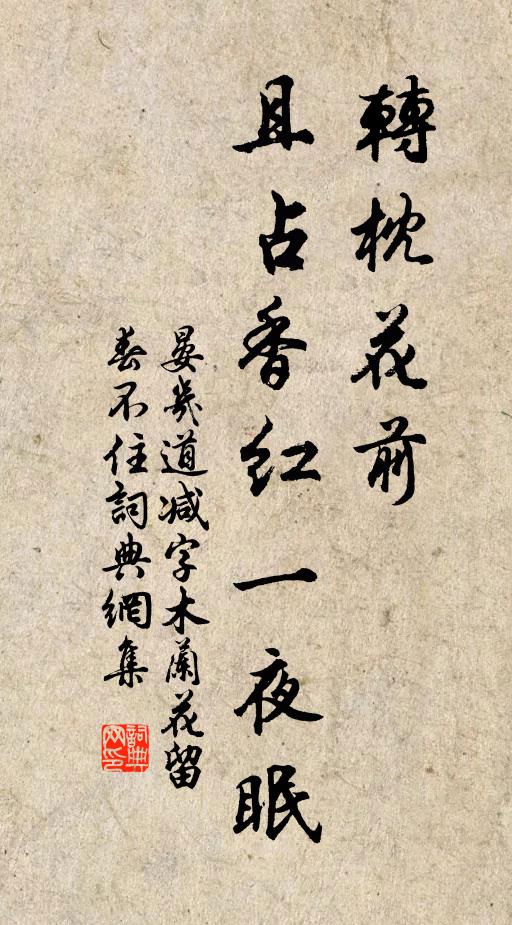 轉枕花前
且占香紅一夜眠
晏幾道減字木蘭花留
春不住詞典網集
詞典
網印